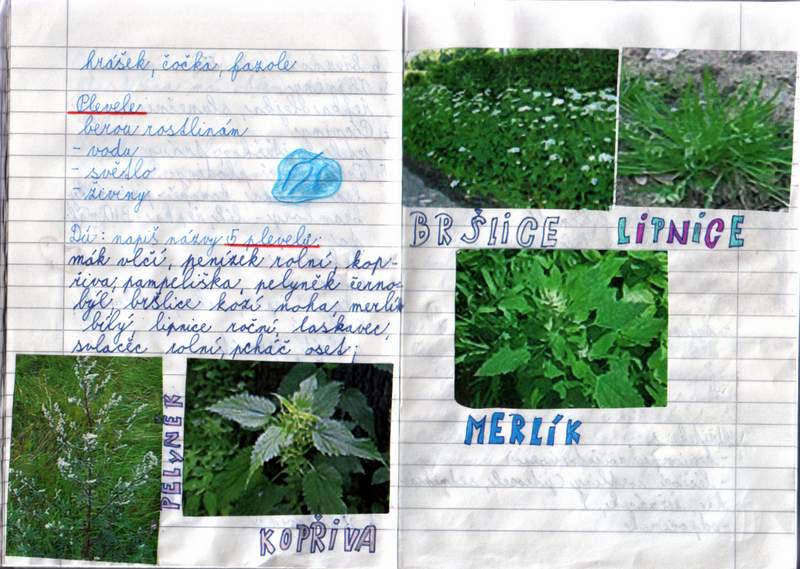 hrášek, čočka, fazole
Plevele:
berou rostlinám
- vodu
- světlo
- živiny
Dú: napiš názvy 5 plevelů:
mák vlčí, penízek rolní, kop-
řiva, pampeliška, pelyněk černo-
býl, bršlice kozí noha, merlík
bílý, lipnice roční, laskavec,
svlačec rolní, pcháč oset;
PELYNĚK
KOPŘIVA
BRŠLICE
LIPNICE
MERLÍK